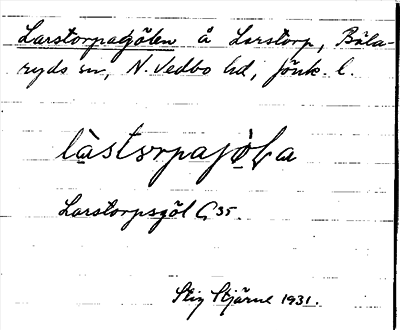 Larstorpagölen å Larstorp, Bäla-
ryds sn, N. Vedbo hd, Jönk. l.
làstorpajö̀la
Larstorpsgöl G35.
Stig Stjärne 1931.